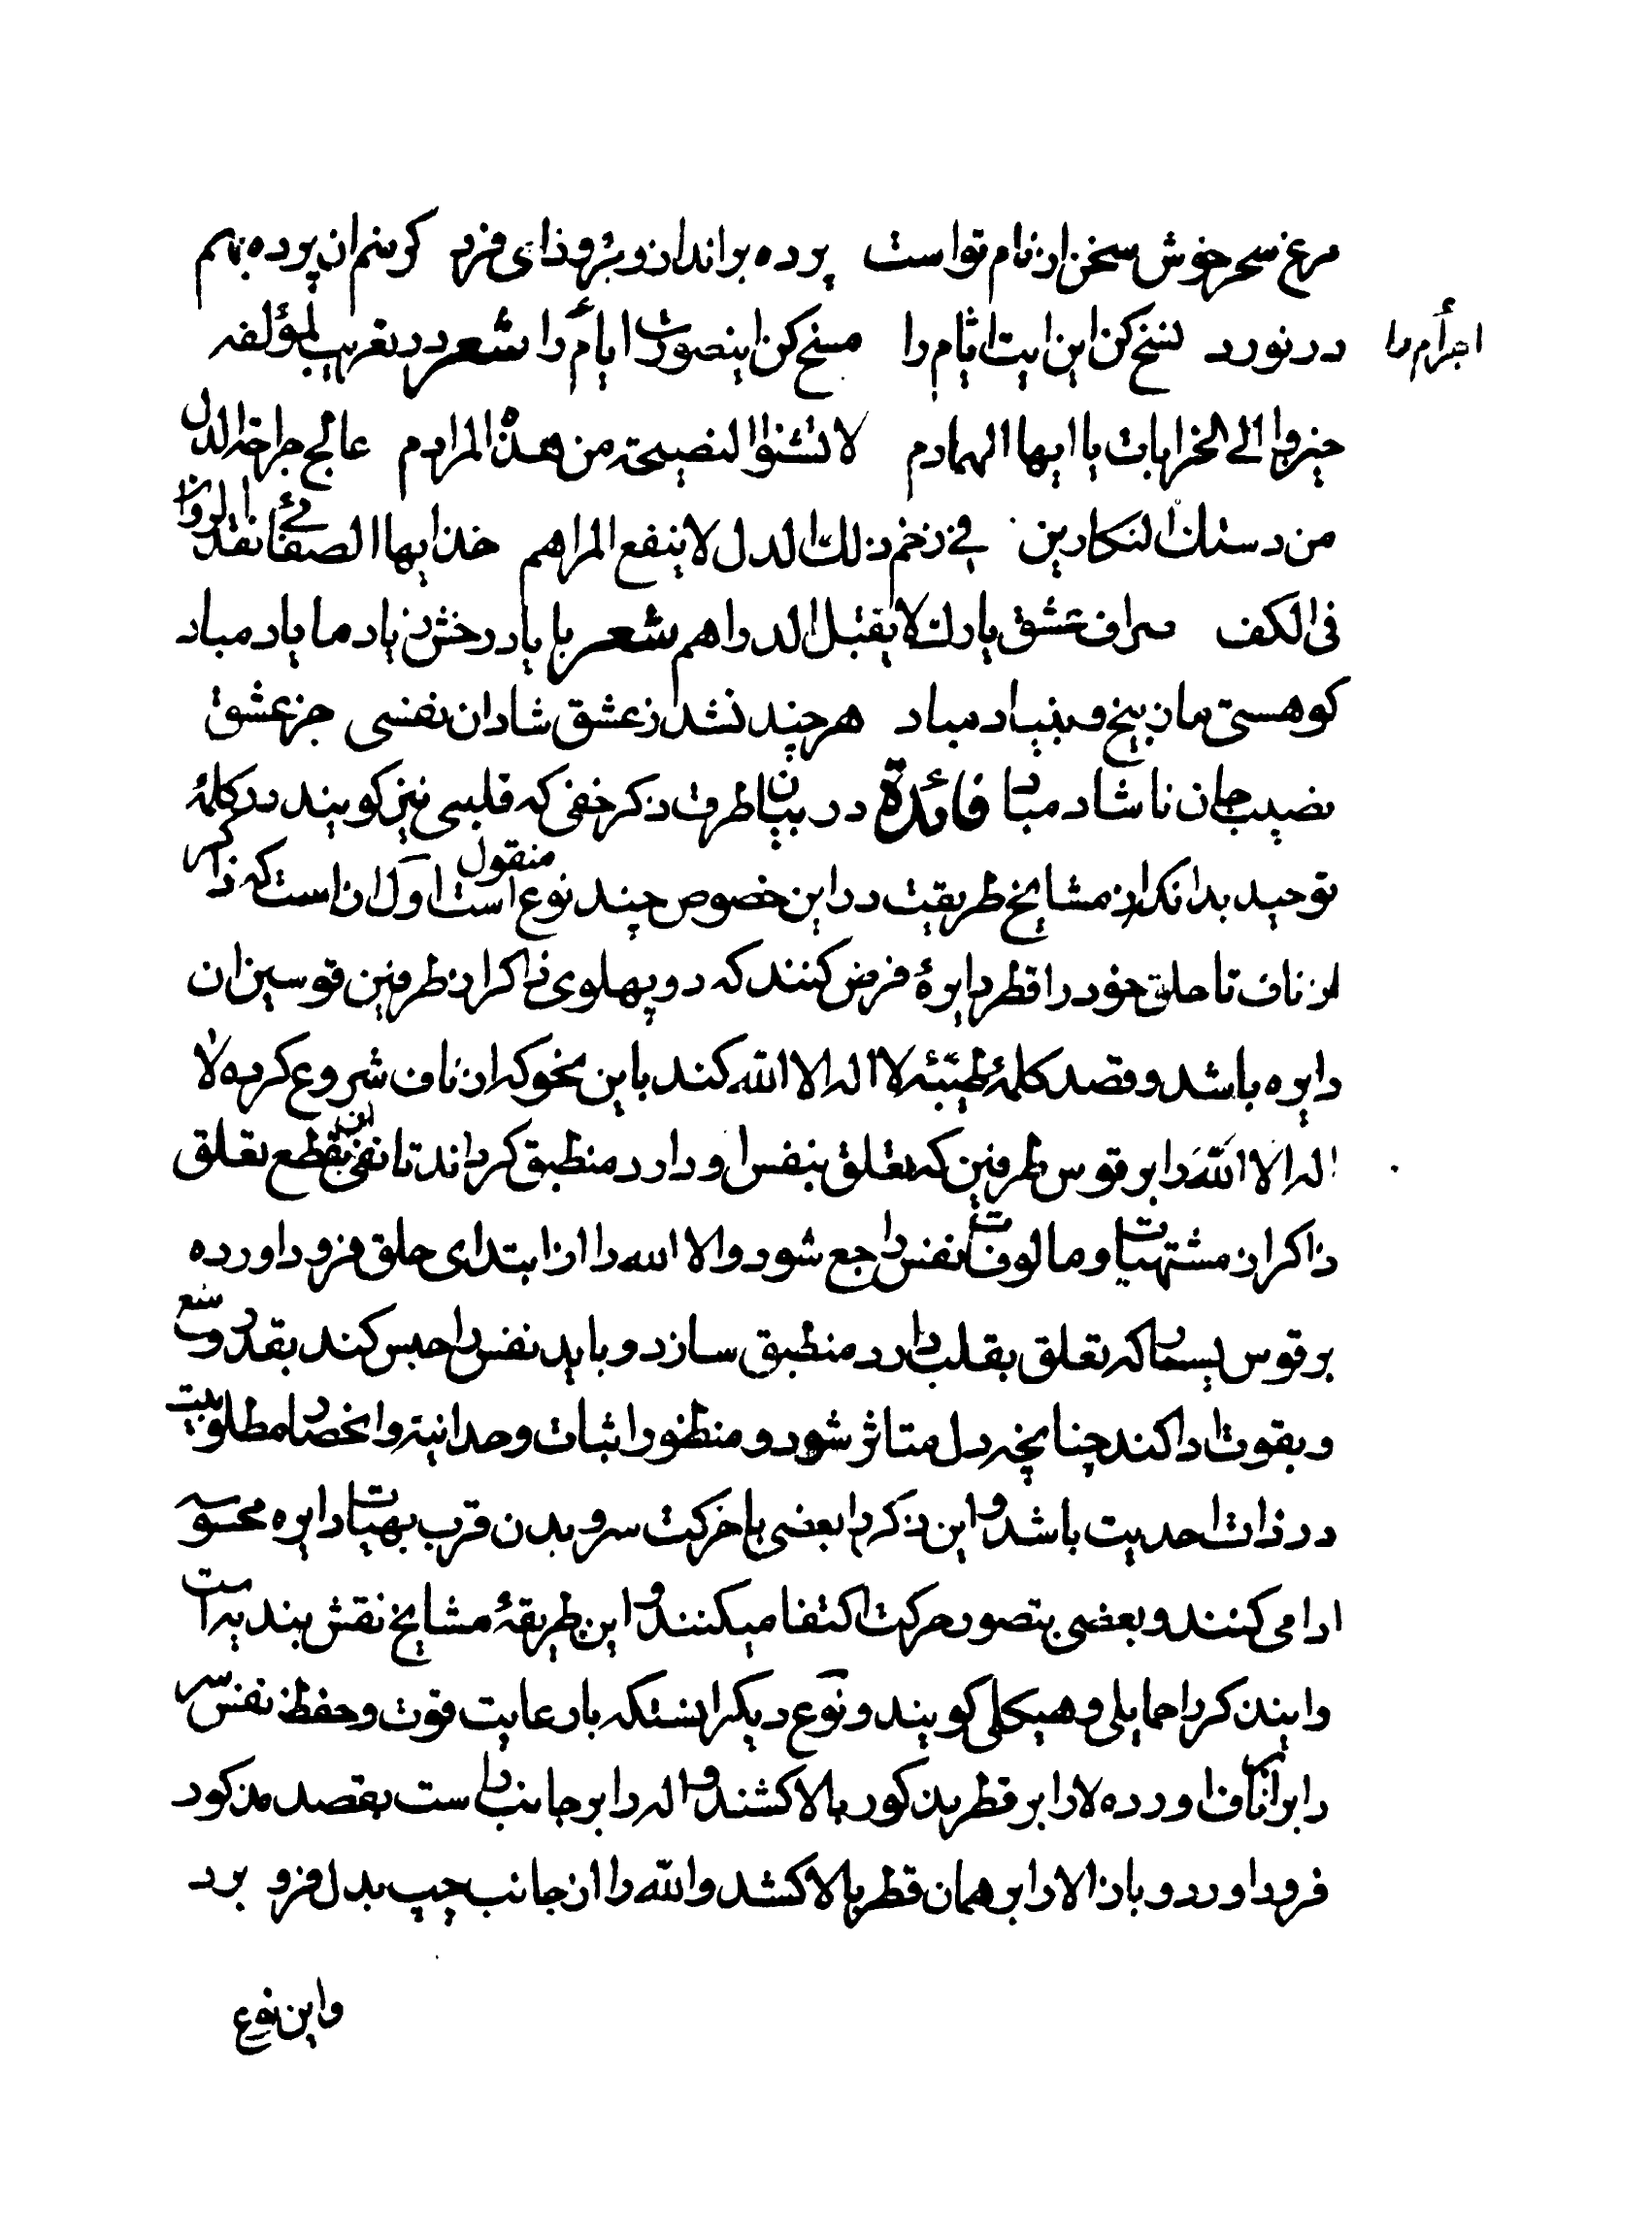 مرغ سحر خوش سخن از نام تو است پرده برانداز و برون آی فرد کر منم آن پرده بهم
در نورد نسخ کن این آیت ایام را مسخ کن اینصورت اجرام را شعر در تعریب لمؤلفه
خیزوا الی الخرابات یا ایها الهمادم لا تشنوا النصیحة من هذه المرادم عالج جراحة الدل
من دستک النکارین فی زخم ذلک الدل لا ینفع المراهم خذ ایها الصفائی نقد الروان
فی الکف صراف عشق یارک لا یقبل الدراهم شعر با یار رخش ز یاد ما یاد مباد
کو هستی مان بیخ و بنیاد مباد هر چند نشد ز عشق شادان نفسی جز عشق
نصیب جان ناشاد مباد فائدة در بیان طرق ذکر خفی که قلبی نیز کویند در کلمۀ
توحید بدانکه از مشایخ طریقت در این خصوص چند نوع منقول است اول آن است که ذاکر
از ناف تا حلق خود را قطر دایرۀ فرض کنند که دو پهلوی ذاکر از طرفین قوسین آن
دایره باشد و قصد کلمۀ طیبۀ لا اله الا الله کند باین نحو که از ناف شروع کرده لا
اله الا الله را بر قوس طرفین که تعلق بنفس او دارد منطبق کرداند تا نفی آن بقطع تعلق
ذاکر از مشتهیات و مالوفات نفس راجع شود و الا الله را از ابتدای حلق فرود اورده
بر قوس یسار که تعلق بقلب دارد منطبق سازد و باید نفس را حبس کند بقدر وسع
و بقوت ادا کند چنانچه دل متاثر شود و منظور اثبات وحدانیة و انحصار مطلوبیت
در ذات احدیت باشد و این ذکر را بعضی با حرکت سر و بدن قرب بهیات دایره محسوسه
ادا می کنند و بعضی بتصور حرکت اکتفا میکنند و این طریقۀ مشایخ نقش بندیه است
و این ذکر را حمایلی و هیکلی کویند و نوع دیکر انستکه با رعایت قوت و حفظ نفس سر
را برابر ناف اورده لا را بر قطر مذکور بالا کشند و اله را بر جانب راست بقصد مذکور
فرود اورد و باز الا را بر همان قطر بالا کشد و الله را از جانب چپ بدل فرو برد
و این نوع
اجرام را